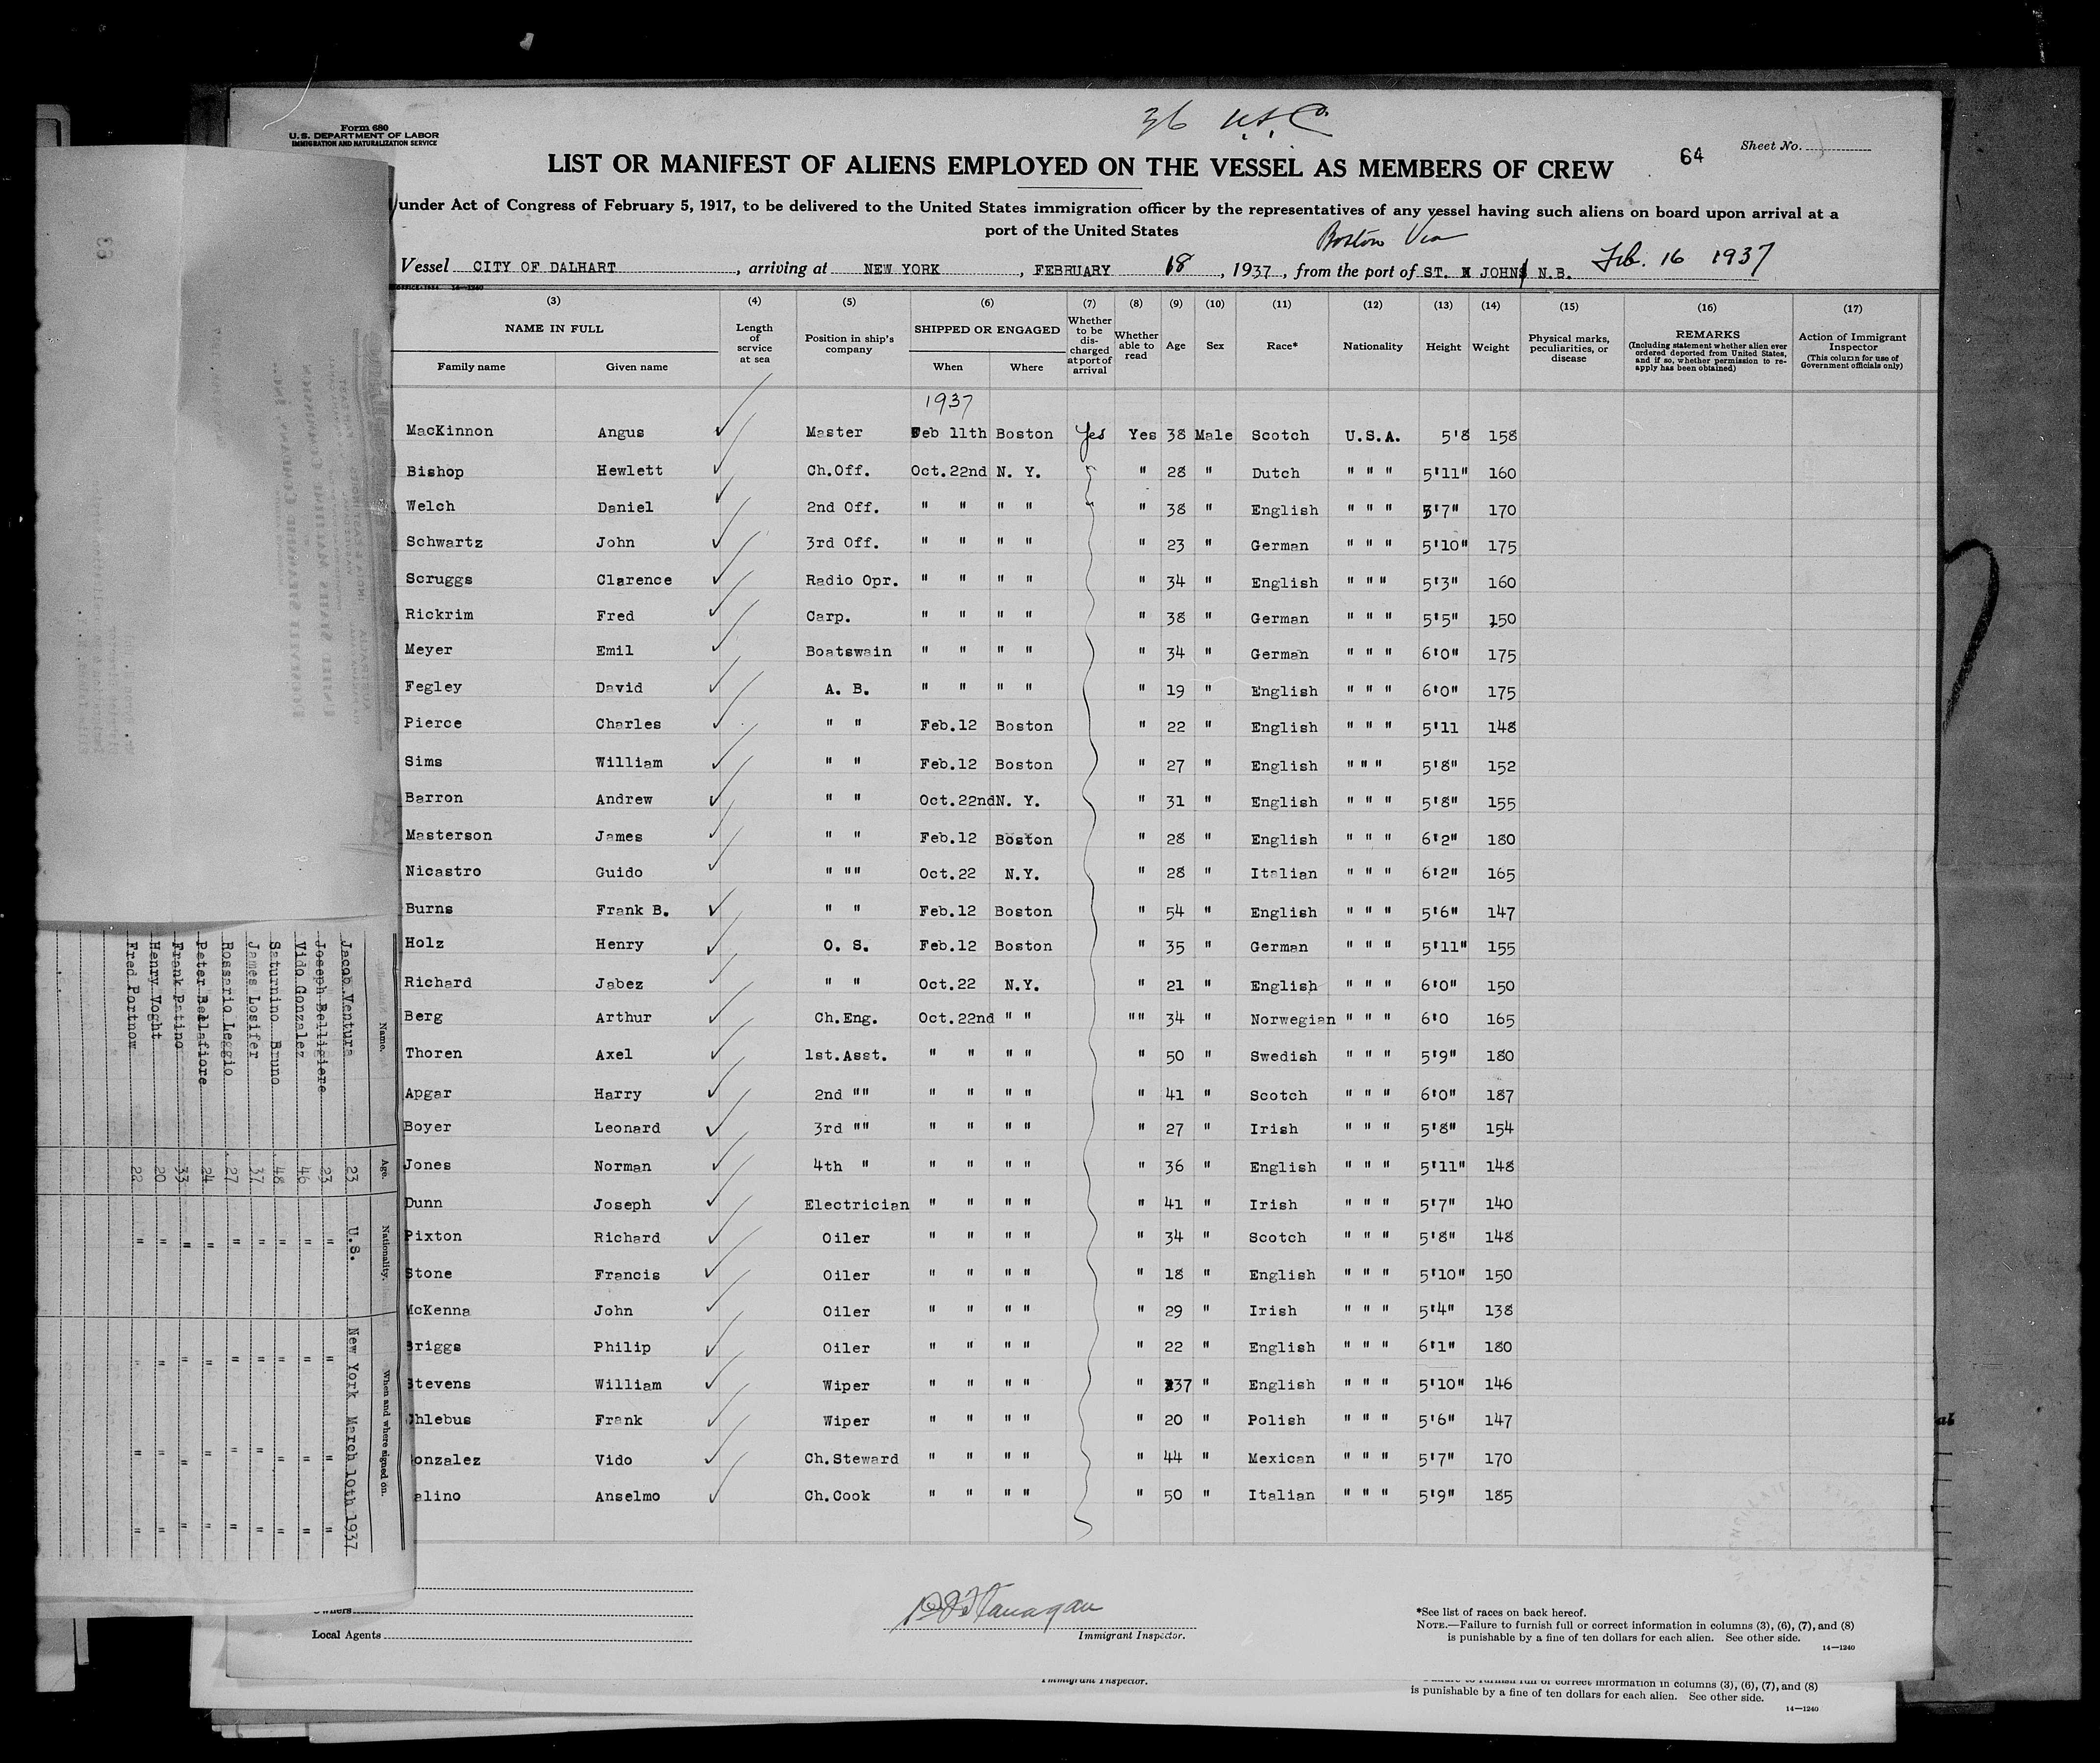 36 U.S.C.
Form 680
U.S. DEPARTMENT OF LABOR
IMMIGRATION AND NATURALIZATION SERVICE
Sheet No.
64
LIST OR MANIFEST OF ALIENS EMPLOYED ON THE VESSEL AS MEMBERS OF CREW
under Act of Congress of February 5, 1917, to be delivered to the United States immigration officer by the representatives of any vessel having such aliens on board upon arrival at a
port of the United States
Boston Via
Vessel CITY OF DALHART, arriving at NEW YORK, FEBRUARY 18, 1937, from the port of ST. JOHNS N.B. Feb. 16 1937
(3) (4) (5) (6) (7) (8) (9) (10) (11) (12) (13) (14) (15) (16) (17)
NAME IN FULL
Family name Given name
Length of service at sea
Position in ship's company
SHIPPED OR ENGAGED
When Where
Whether to be discharged at port of arrival
Whether able to read
Age Sex Race* Nationality Height Weight
Physical marks, peculiarities, or disease
REMARKS
(Including statement whether alien ever ordered deported from United States, and if so, whether permission to reapply has been obtained)
Action of Immigrant Inspector
(This column for use of Government officials only)
1937
MacKinnon Angus Master Feb 11th Boston Yes Yes 38 Male Scotch U.S.A. 5'8 158
Bishop Hewlett Ch.Off. Oct.22nd N. Y. " 28 " Dutch " " " 5'11" 160
Welch Daniel 2nd Off. " " " " " 38 " English " " " 5'7" 170
Schwartz John 3rd Off. " " " " " 23 " German " " " 5'10" 175
Scruggs Clarence Radio Opr. " " " " " 34 " English " " " 5'3" 160
Rickrim Fred Carp. " " " " " 38 " German " " " 5'5" 150
Meyer Emil Boatswain " " " " " 34 " German " " " 6'0" 175
Fegley David A. B. " " " " " 19 " English " " " 6'0" 175
Pierce Charles " " Feb.12 Boston " 22 " English " " " 5'11 148
Sims William " " Feb.12 Boston " 27 " English " " " 5'8" 152
Barron Andrew " " Oct.22nd N. Y. " 31 " English " " " 5'8" 155
Masterson James " " Feb.12 Boston " 28 " English " " " 6'2" 180
Nicastro Guido " "" Oct.22 N.Y. " 28 " Italian " " " 6'2" 165
Burns Frank B. " " Feb.12 Boston " 54 " English " " " 5'6" 147
Holz Henry O. S. Feb.12 Boston " 35 " German " " " 5'11" 155
Richard Jabez " " Oct.22 N.Y. " 21 " English " " " 6'0" 150
Berg Arthur Ch.Eng. Oct.22nd " " "" 34 " Norwegian " " " 6'0 165
Thoren Axel 1st.Asst. " " " " " 50 " Swedish " " " 5'9" 180
Apgar Harry 2nd "" " " " " " 41 " Scotch " " " 6'0" 187
Boyer Leonard 3rd "" " " " " " 27 " Irish " " " 5'8" 154
Jones Norman 4th " " " " " " 36 " English " " " 5'11" 148
Dunn Joseph Electrician " " " " " 41 " Irish " " " 5'7" 140
Pixton Richard Oiler " " " " " 34 " Scotch " " " 5'8" 148
Stone Francis Oiler " " " " " 18 " English " " " 5'10" 150
McKenna John Oiler " " " " " 29 " Irish " " " 5'4" 138
Briggs Philip Oiler " " " " " 22 " English " " " 6'1" 180
Stevens William Wiper " " " " " 37 " English " " " 5'10" 146
Chlebus Frank Wiper " " " " " 20 " Polish " " " 5'6" 147
onzalez Vido Ch.Steward " " " " " 44 " Mexican " " " 5'7" 170
alino Anselmo Ch.Cook " " " " " 50 " Italian " " " 5'9" 185
Owners
Local Agents
Immigrant Inspector.
*See list of races on back hereof.
NOTE.—Failure to furnish full or correct information in columns (3), (6), (7), and (8)
is punishable by a fine of ten dollars for each alien. See other side.
14—1240
Immigrant Inspector.
is punishable by a fine of ten dollars for each alien. See other side.
14—1240
63
Name. Age. Nationality. When and where signed on.
Jacob Ventura 23 U.S. New York March 10th 1937
Joseph Belligiere 23 " " " "
Vido Gonzalez 46 " " " "
Saturnino Bruno 48 " " " "
James Losifer 37 " " " "
Rossario Leggio 27 " " " "
Peter Bellafiore 24 " " " "
Frank Patino 33 " " " "
Henry Voght 20 " " " "
Fred Portnow 22 " " " "